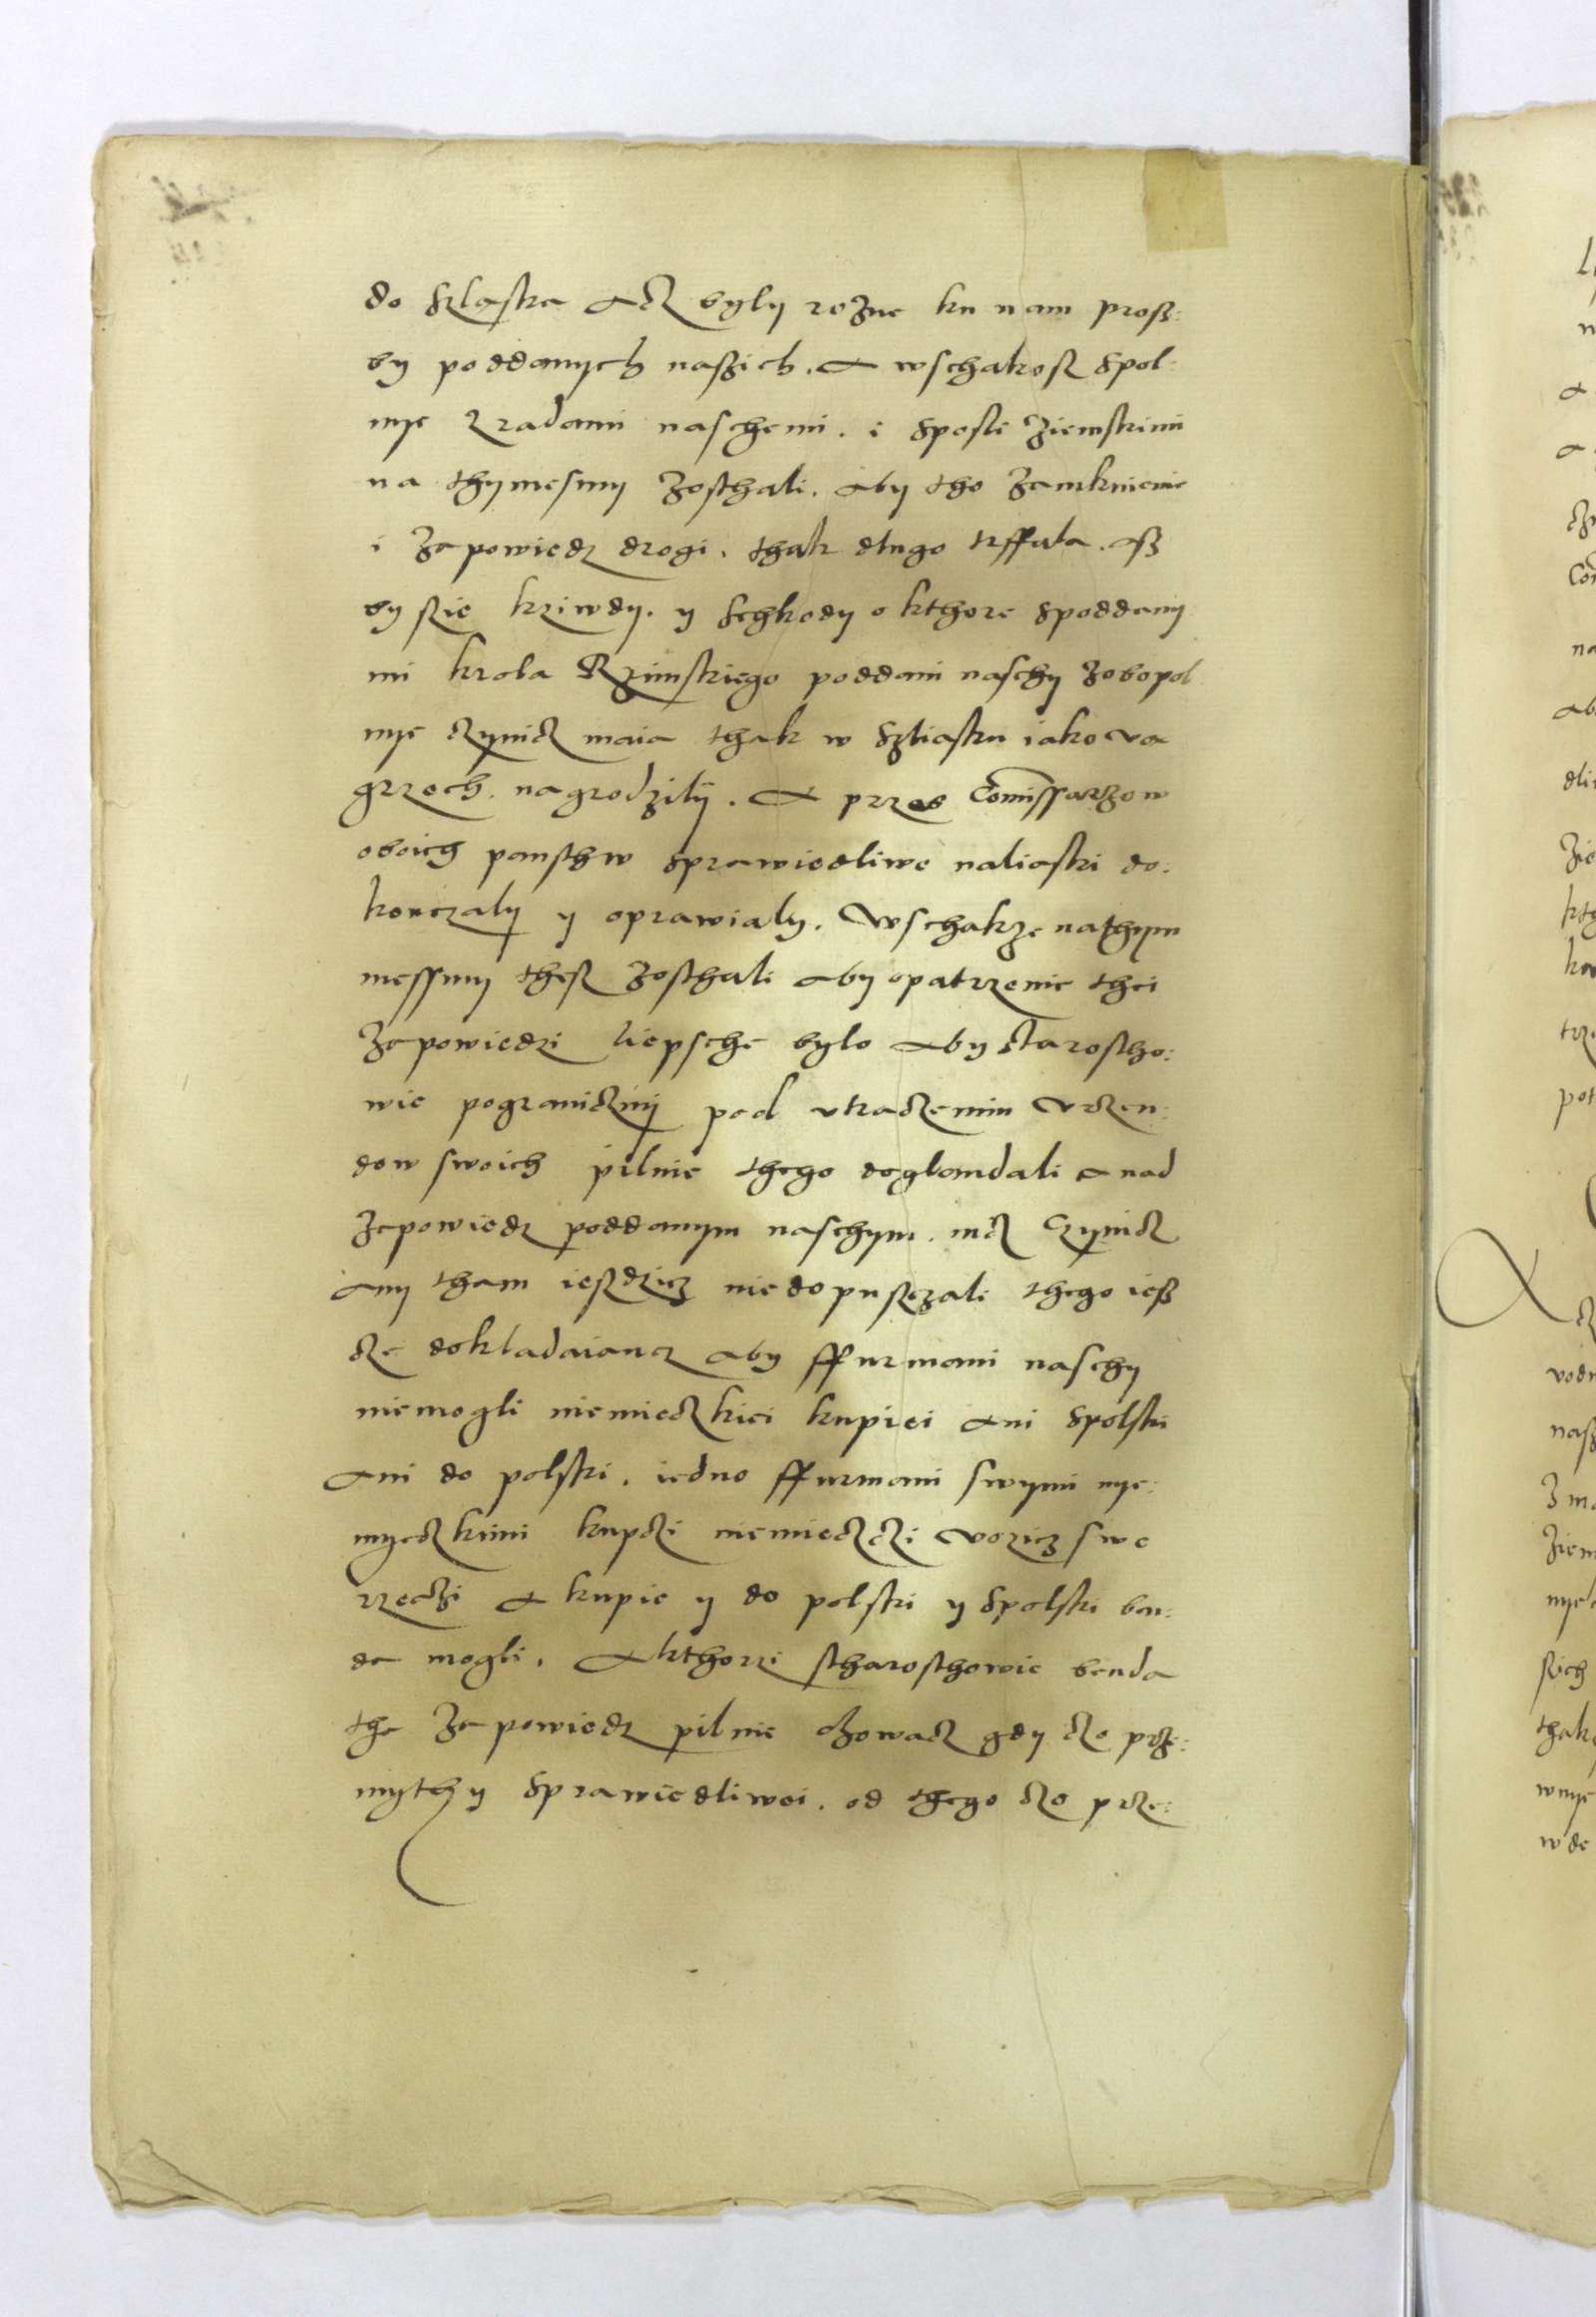 do Szlaska acz byly rozne ku nam prosz:
by poddanych naszich. A wschakosz spol:
nye z radami naschemi. i sposli ziemskimi
na thymesmy zosthali. aby tho zamknienie
i zapowiedz drogi. thak dlugo trffala. asz
by szie kriwdy. y schkody o kthore spoddany
mi krola Rzimskiego poddani naschy zobopol
nye czynicz maia thak w Szliasku iako Va
grzech. nagrodzily. A przes Comissarzow
oboich pansthw sprawiedliwe naliaski do:
konczaly y oprawialy. Wschakze nathym
messmy thesz zosthali aby opatrzenie thei
zapowiedzi liepsche bylo aby starostho:
wie pograniczni pod vtraczenim Vrzen:
dow swoich pilnie thego doglandali a nad
zapowiedz poddanym naschym. nicz czynicz
any tham ieszdzicz niedopusczali thego iesz
cze dokladaiancz aby ffurmani naschy
niemogli niemieczkiei kupiei ani spolski
ani do polski. iedno ffurmani swymi nye:
myeczkimi kupczi niemieczczi vozicz swe
rzeczi a kupie y do polski y spolski ban:
da mogli. A kthorzi stharosthowie benda
tha zapowiedz pilnie chowacz gdy czo prze:
mythy sprawiedliwei. od thego czo prze: